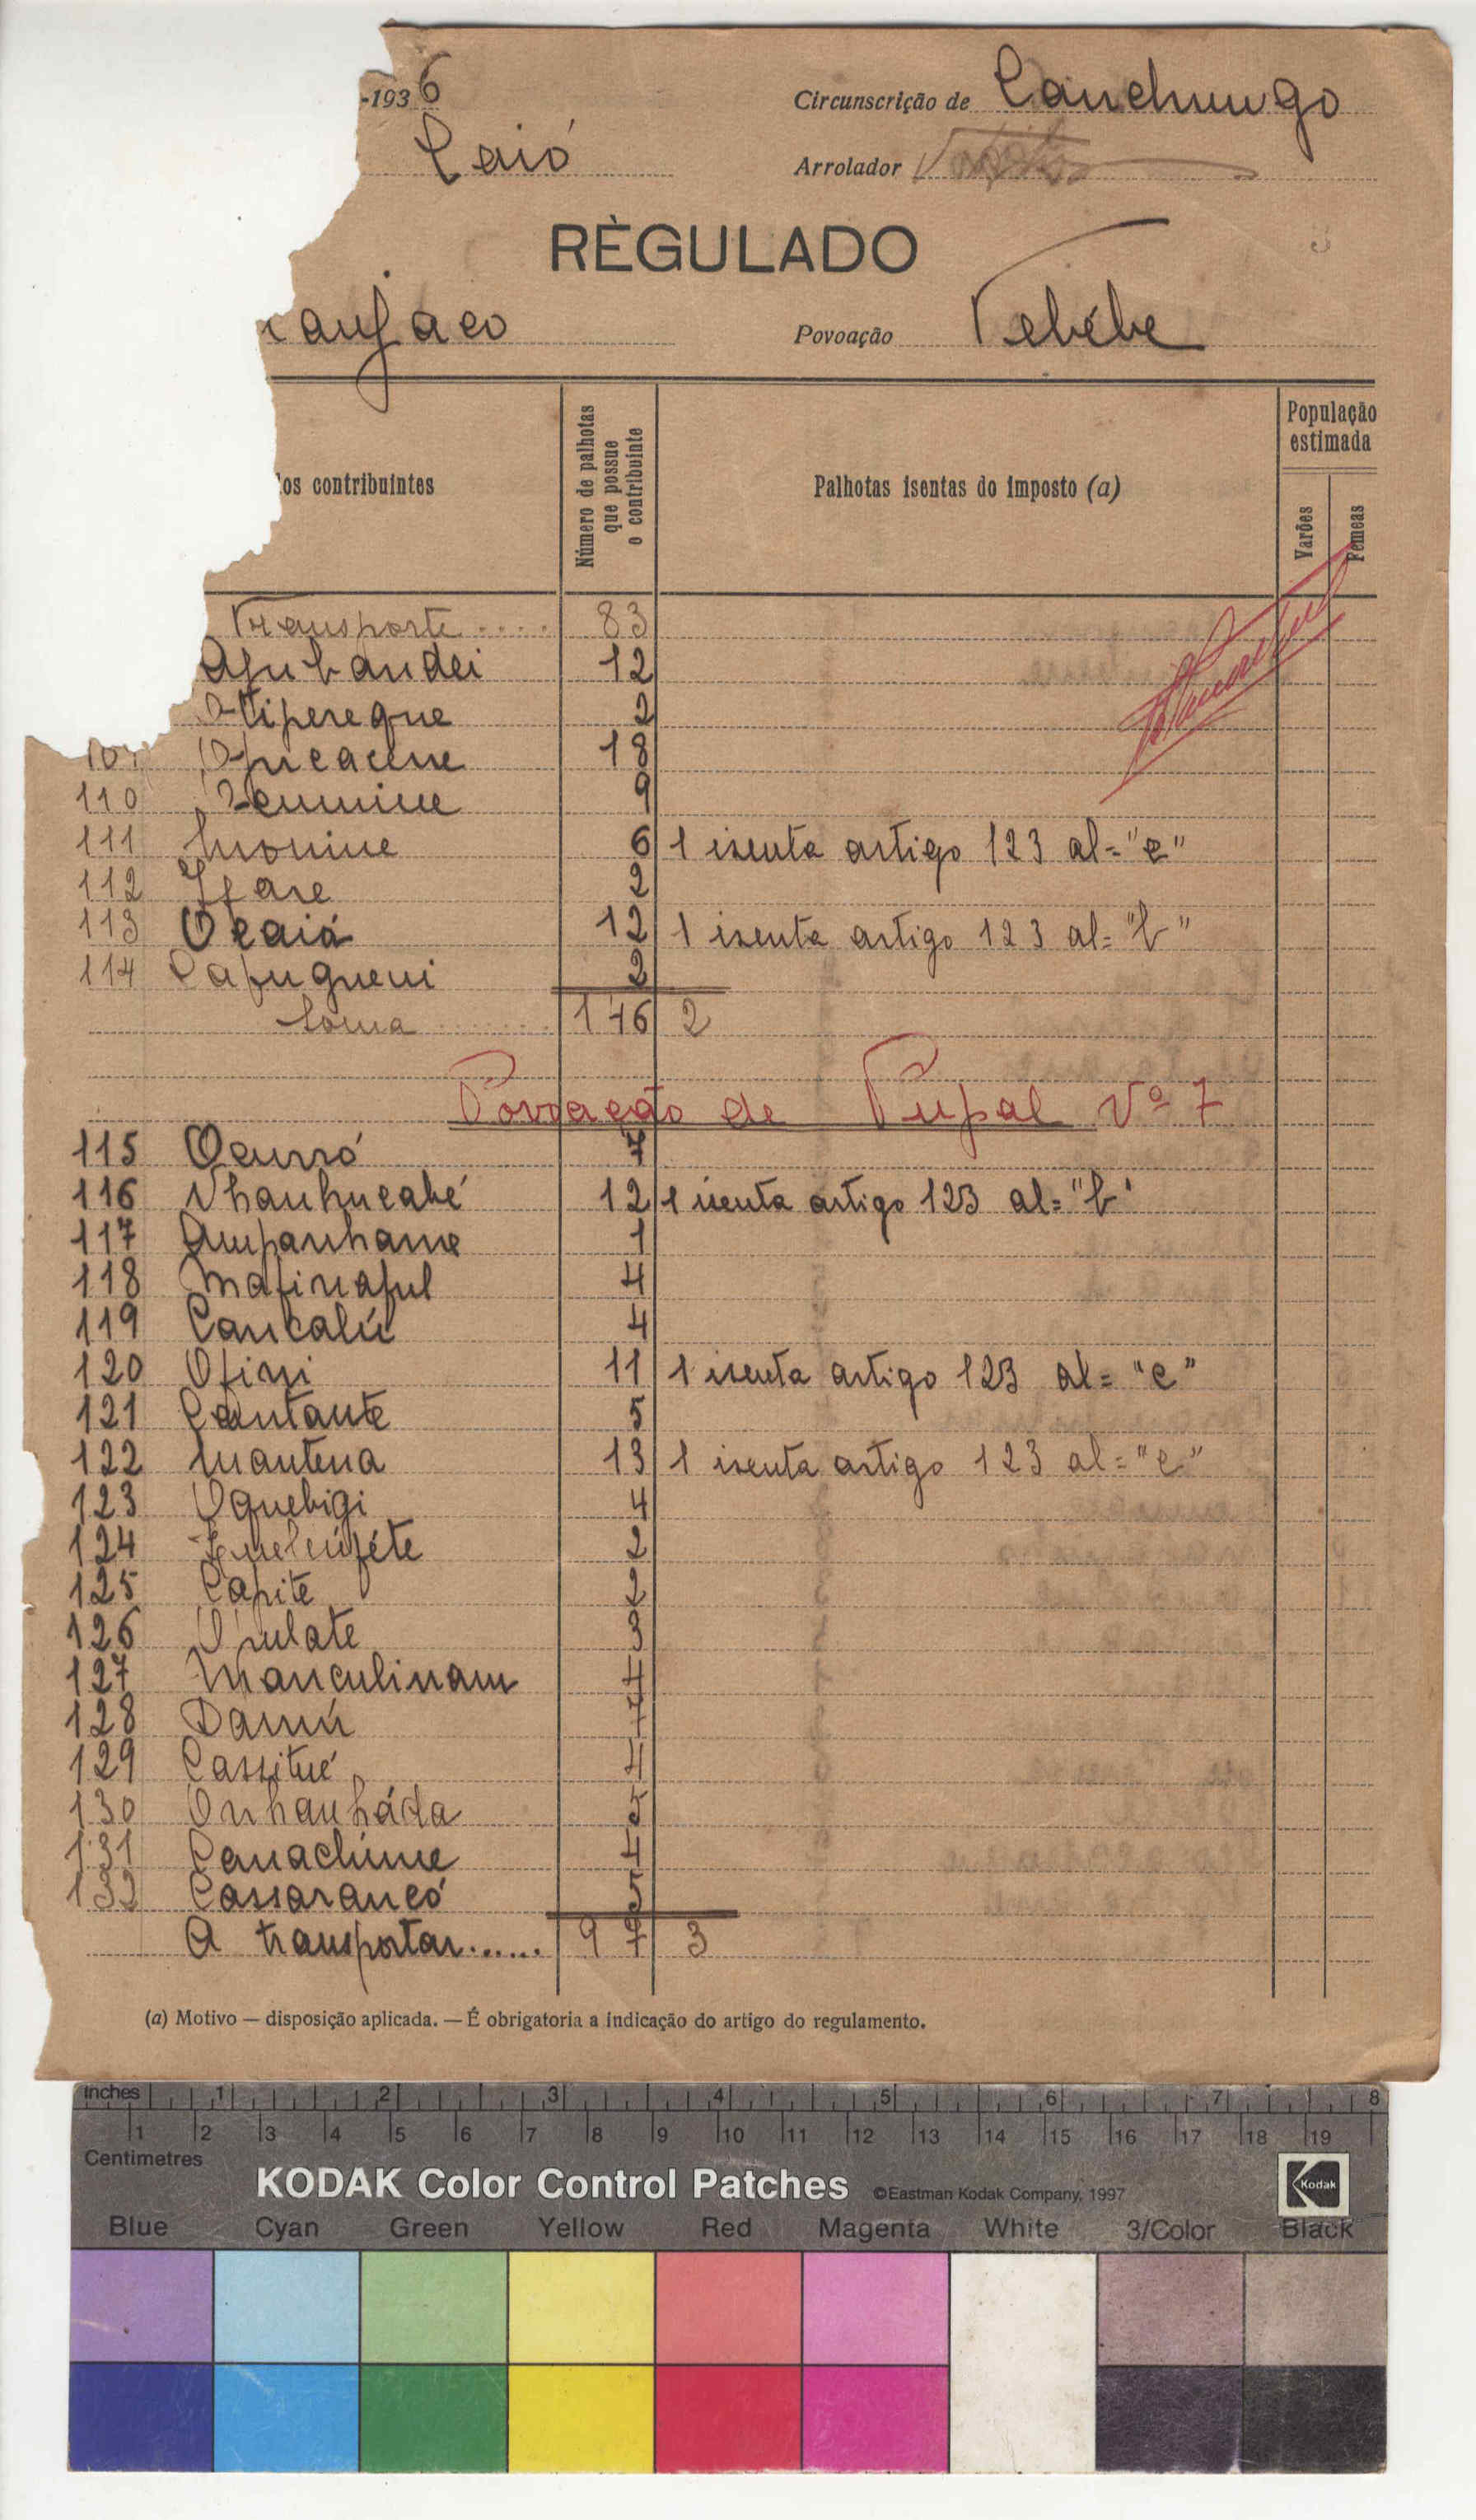 -1936 Circunscrição de Canchungo
Caió Arrolador
RÈGULADO
Povoação Tebébe
dos contribuintes
Número de palhotas que possue o contribuinte
Palhotas isentas do imposto (a)
População estimada
Varões
Femeas
Transporte .... 83
Apubandei 12
Atipereque 2
Opucacene 18
110 9
111 6 1 isenta artigo 123 al= "e"
112 Ifare 2
113 Ocaiá 12 1 isenta artigo 123 al= "b"
114 Capugueni 2
Soma ...... 146 2
Povoação de Pupal Nº 7
115 Ocurró 7
116 Nhanhucabé 12 1 isenta artigo 123 al= "b"
117 Ampanhame 1
118 Mafinaful 4
119 Cancalú 4
120 Ofini 11 1 isenta artigo 123 al= "e"
121 Cantante 5
122 Mantena 13 1 isenta artigo 123 al= "e"
123 Oquebigi 4
124 2
125 Capite 2
126 3
127 Manculinam 4
128 Damú 7
129 Cassitué 4
130 Onhanháda 5
131 Canachime 4
132 Cassarancó 5
A transportar...... 97 3
(a) Motivo — disposição aplicada. — É obrigatoria a indicação do artigo do regulamento.
inches 1 2 3 4 5 6 7 8
1 2 3 4 5 6 7 8 9 10 11 12 13 14 15 16 17 18 19
Centimetres
KODAK Color Control Patches ©Eastman Kodak Company, 1997 Kodak
Blue Cyan Green Yellow Red Magenta White 3/Color Black